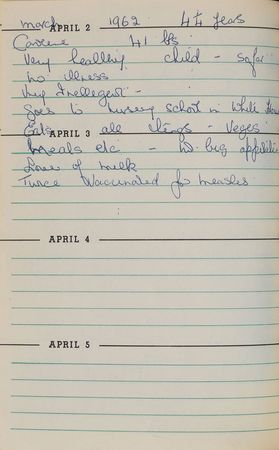 March 1962 4¼ years
APRIL 2
Caroline 41 lbs
Very healthy child - so far
no illness
Very Intellegent -
Goes to nursery school in White House
APRIL 3
Eats all things - veges
Meals etc - no big appetite
Lover of milk
Twice Vaccinated for measles
APRIL 4
APRIL 5